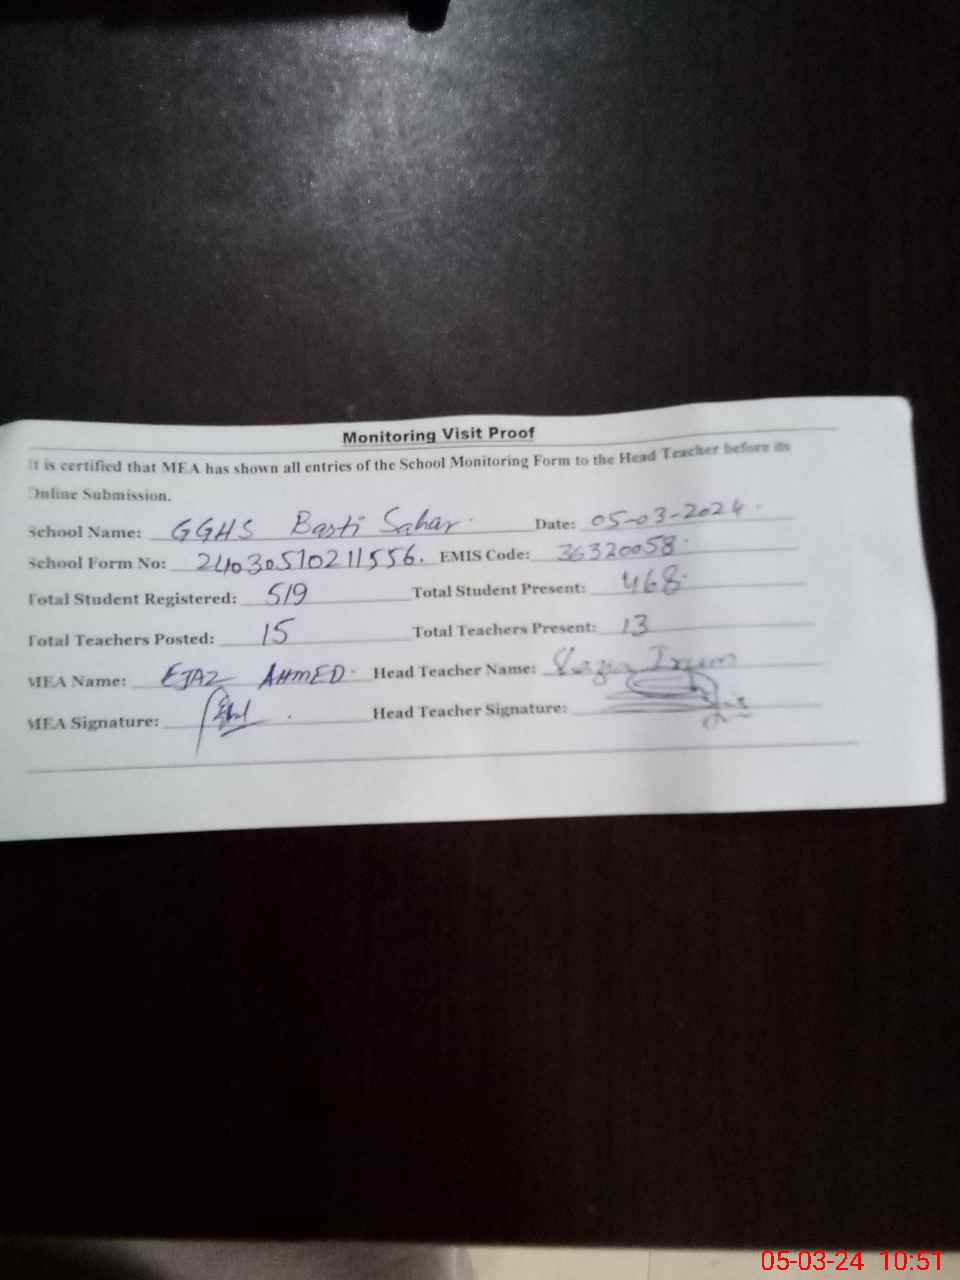 Monitoring Visit Proof
It is certified that MEA has shown all entries of the School Monitoring Form to the Head Teacher before its
Online Submission.
School Name: GGHS Basti Sahar Date: 05-03-2024
School Form No: 24030510211556. EMIS Code: 36320058
Total Student Registered: 519 Total Student Present: 468
Total Teachers Posted: 15 Total Teachers Present: 13
MEA Name: EJAZ AHMED Head Teacher Name:
MEA Signature: Head Teacher Signature:
05-03-24 10:51